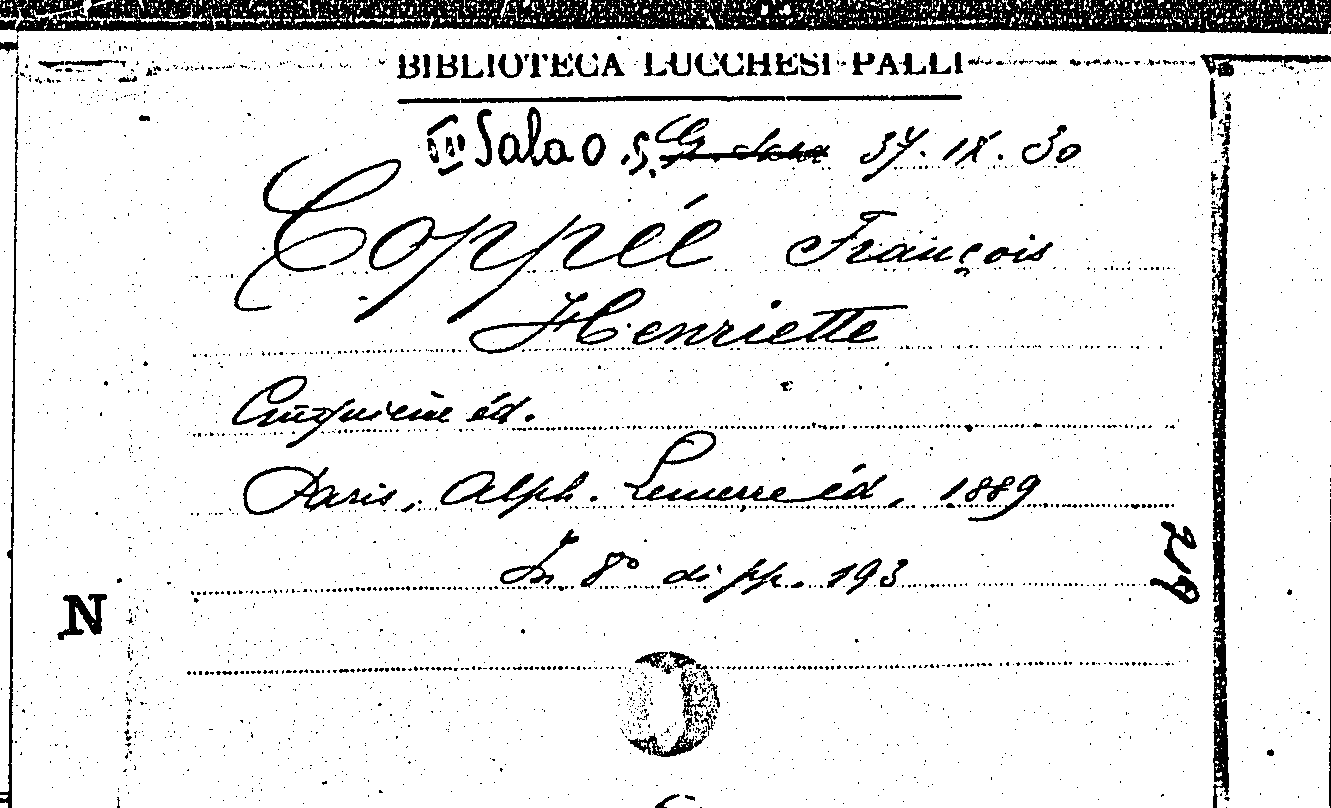 BIBLIOTECA LUCCHESI-PALLI
III Sala O. 5. 37. IX. 30
Coppée François
Henriette
Cinquième éd.
Paris, Alph. Lemerre éd, 1889
In 8° di pp. 193
219
N